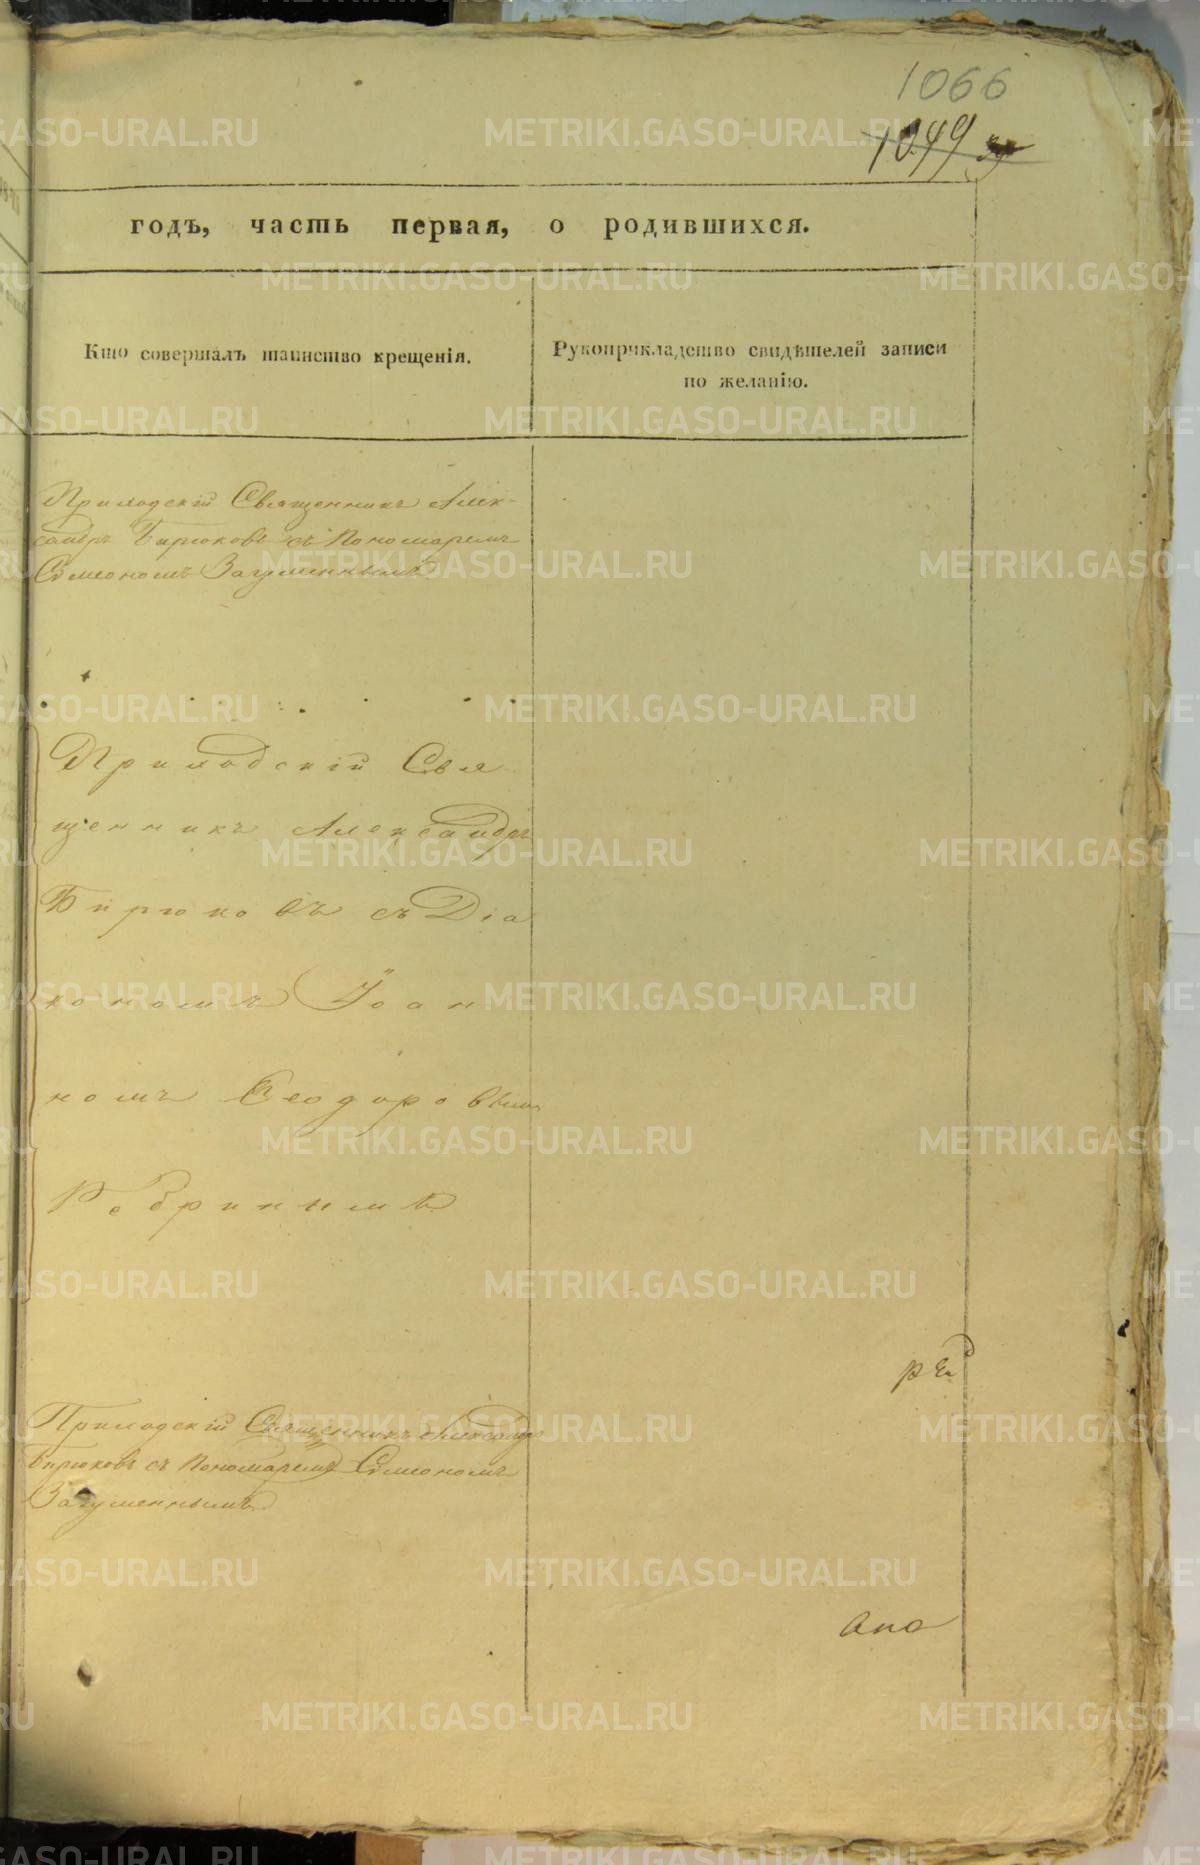 1066
1049
годъ, часть первая, о родившихся.
Кто совершалъ таинство крещенія.
Рукоприкладство свидѣтелей записи
по желанію.
Приходскій Священникъ Алек-
сандръ Бирюковъ съ Пономаремъ
Сѵмеономъ Загуменнымъ.
Приходскій Свя
щенникъ Александръ
Бирюковъ съ Діа
кономъ Іоан
номъ Ѳеодоровымъ
Ребринымъ
Приходскій Священникъ Александръ
Бирюковъ съ Пономаремъ Сѵмеономъ
Загуменнымъ
METRIKI.GASO-URAL.RU